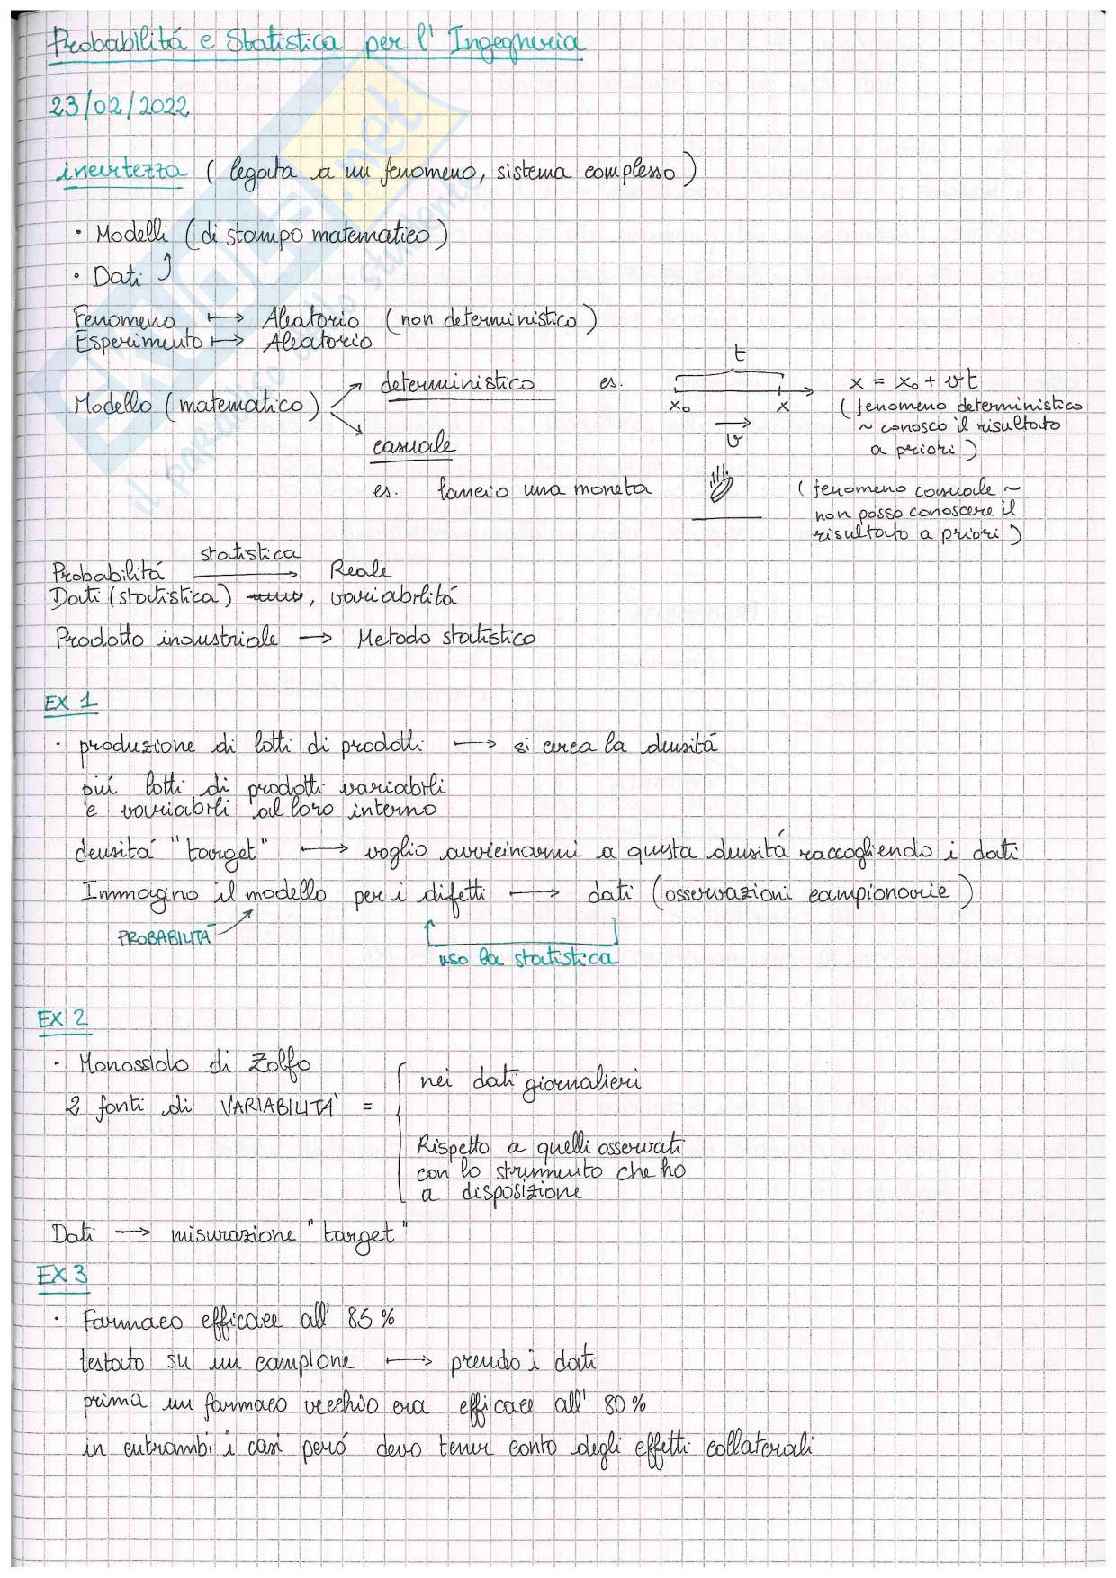 Probabilitá e Statistica per l' Ingegneria
23/02/2022
incertezza ( legata a un fenomeno, sistema complesso )
· Modelli ( di stampo matematico )
· Dati
Fenomeno ↦ Aleatorio ( non deterministico )
Esperimento ↦ Aleatorio
t
deterministico es. x = x₀ + vt
Modello ( matematico ) x₀ x ( fenomeno deterministico
~ conosco il risultato
v
casuale a priori )
es. lancio una moneta ( fenomeno casuale ~
non posso conoscere il
risultato a priori )
statistica
Probabilitá → Reale
Dati ( statistica ) , variabilitá
Prodotto industriale → Metodo statistico
EX 1
· produzione di lotti di prodotti ⟼ si cerca la densitá
piú lotti di prodotti variabili
e variabili al loro interno
densitá "target" ⟼ voglio avvicinarmi a questa densitá raccogliendo i dati
Immagino il modello per i difetti ⟼ dati ( osservazioni campionarie )
PROBABILITÁ
uso la statistica
EX 2
· Monossido di Zolfo
nei dati giornalieri
2 fonti di VARIABILITÁ =
Rispetto a quelli osservati
con lo strumento che ho
a disposizione
Dati → misurazione "target"
EX 3
· Farmaco efficace all' 85 %
testato su un campione ⟼ prendo i dati
prima un farmaco vecchio era efficace all' 80 %
in entrambi i casi peró devo tener conto degli effetti collaterali